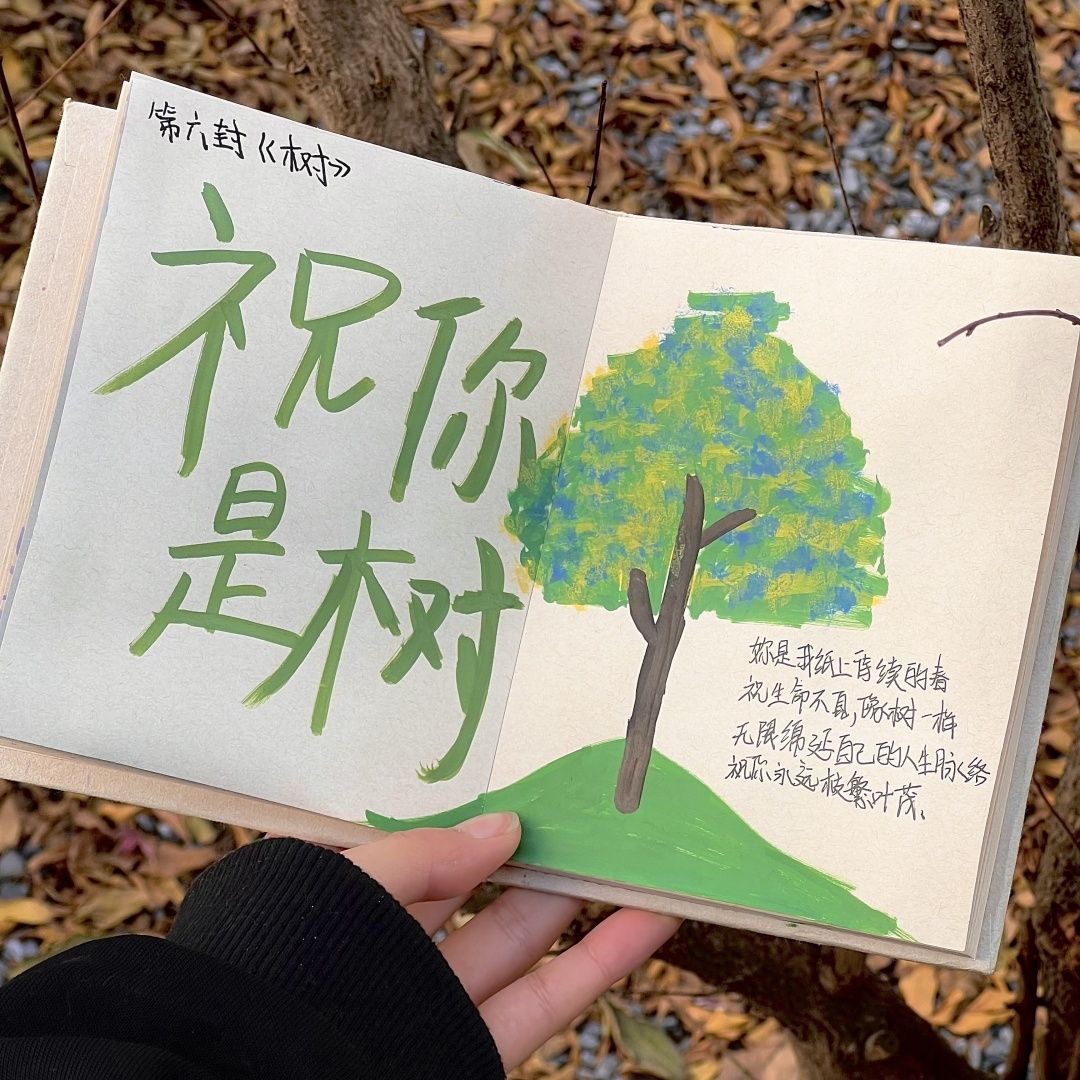 第六封《树》
祝你
是树
妳是我纸上待续的春
祝生命不息,像树一样
无限绵延自己的人生脉络
祝你永远枝繁叶茂、